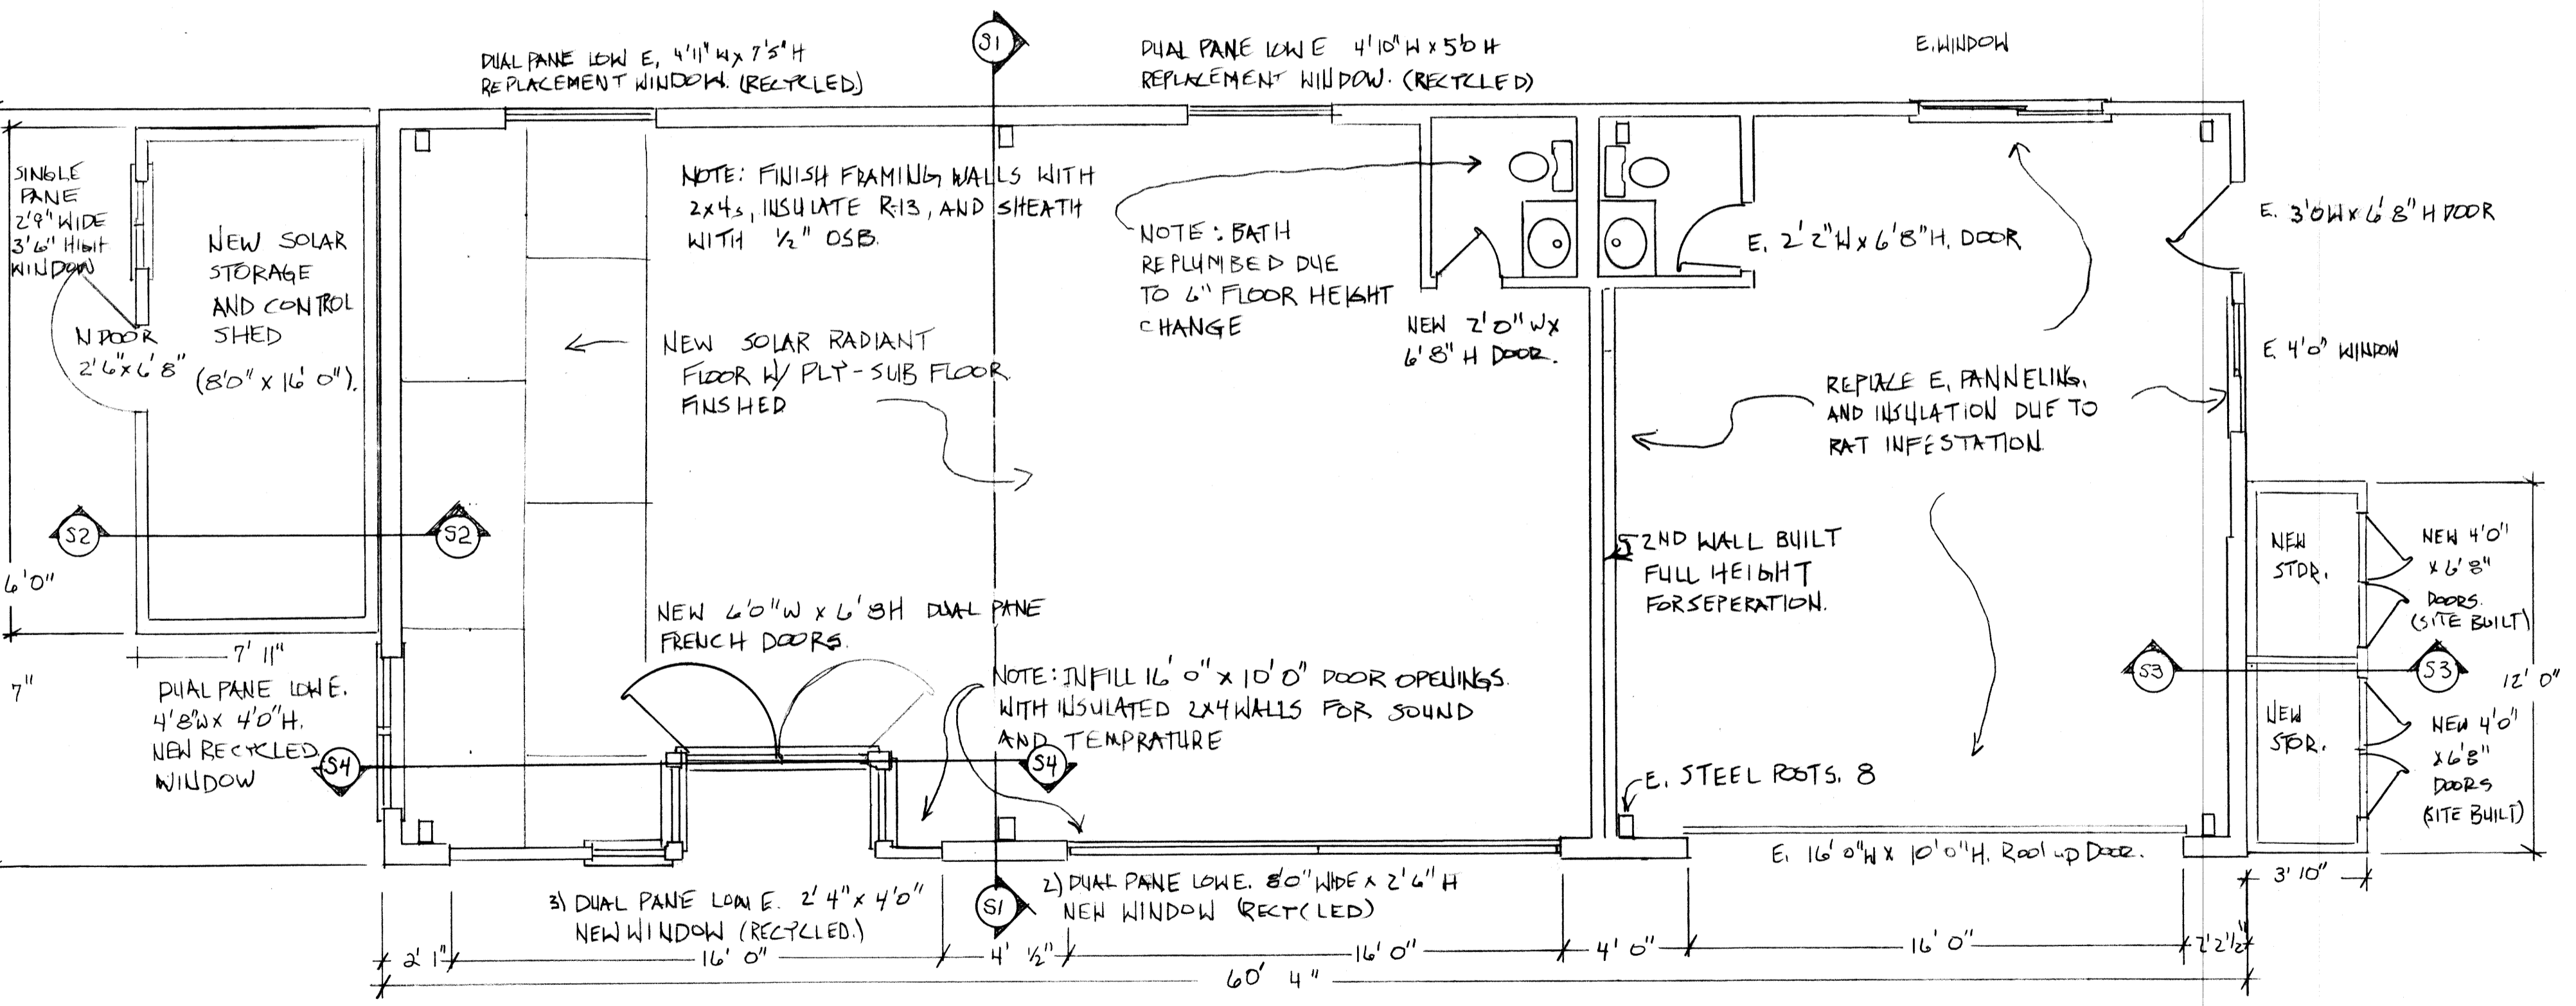 S1
DUAL PANE LOW E, 4'11" W x 7'5" H
REPLACEMENT WINDOW. (RECYCLED)
DUAL PANE LOW E 4'10" W x 5'0 H
REPLACEMENT WINDOW. (RECYCLED)
E. WINDOW
SINGLE
PANE
2'9" WIDE
3'6" HIGH
WINDOW
NEW SOLAR
STORAGE
AND CONTROL
SHED
(8'0" x 16'0").
N DOOR
2'6"x6'8"
NOTE: FINISH FRAMING WALLS WITH
2x4s, INSULATE R-13, AND SHEATH
WITH 1/2" OSB.
NOTE: BATH
REPLUMBED DUE
TO 6" FLOOR HEIGHT
CHANGE
NEW 2'0" W x
6'8" H DOOR.
E. 2'2" W x 6'8" H. DOOR
E. 3'0 W x 6'8" H DOOR
E. 4'0" WINDOW
NEW SOLAR RADIANT
FLOOR W/ PLY-SUB FLOOR
FINSHED
REPLACE E. PANNELING,
AND INSULATION DUE TO
RAT INFESTATION.
S2
S2
6'0"
7'11"
7"
2ND WALL BUILT
FULL HEIGHT
FOR SEPERATION.
NEW
STOR.
NEW 4'0"
x 6'8"
DOORS.
(SITE BUILT)
NEW 6'0" W x 6'8 H DUAL PANE
FRENCH DOORS.
NOTE: INFILL 16'0" x 10'0" DOOR OPENINGS.
WITH INSULATED 2x4 WALLS FOR SOUND
AND TEMPRATURE
S3
S3
12'0"
DUAL PANE LOW E.
4'8" W x 4'0" H.
NEW RECYCLED
WINDOW
S4
S4
NEW
STOR.
NEW 4'0"
x 6'8"
DOORS
(SITE BUILT)
E. STEEL POSTS. 8
E. 16'0" W x 10'0" H. Rool up Door.
3'10"
3) DUAL PANE LOW E. 2'4" x 4'0"
NEW WINDOW (RECYCLED.)
S1
2) DUAL PANE LOW E. 8'0" WIDE x 2'6" H
NEW WINDOW (RECYCLED)
2'1"
16'0"
4' 1/2"
16'0"
4'0"
16'0"
2'2 1/2"
60'4"